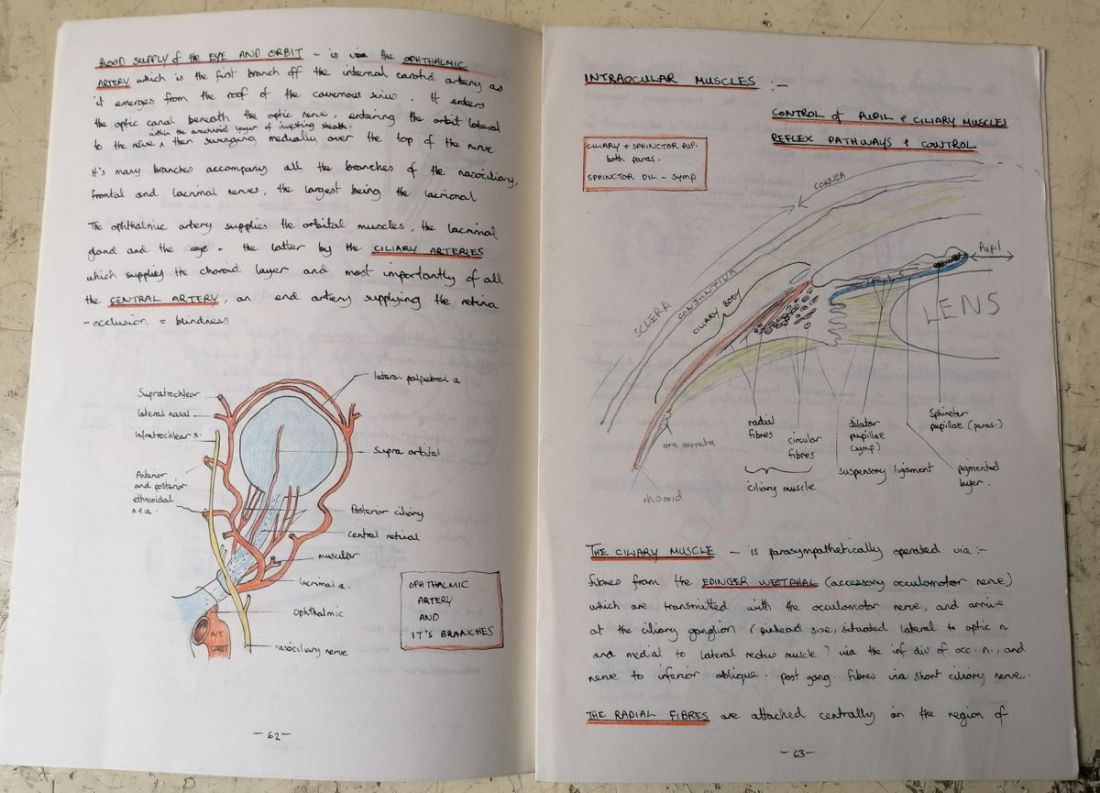 BLOOD SUPPLY of the EYE AND ORBIT - is via the OPHTHALMIC
ARTERY which is the first branch off the internal carotid artery as
it emerges from the roof of the cavernous sinus. It enters
the optic canal beneath the optic nerve, entering the orbit lateral
within the arachnoid layer of investing sheath.
to the nerve & then swinging medially over the top of the nerve
It's many branches accompany all the branches of the nasociliary,
frontal and lacrimal nerves, the largest being the lacrional
The ophthalmic artery supplies the orbital muscles, the lacrimal
gland and the eye - the latter by the CILIARY ARTERIES
which supplies the choroid layer and most importantly of all
the CENTRAL ARTERY, an end artery supplying the retina
- occlusion = blindness
lateral palpebral a
Supratrochlear
lateral nasal
Infratrochlear n.
Supra orbital
Anterior
and posterior
ethmoidal
n & a.
Posterior ciliary
central retinal
muscular
lacrimal a.
Ophthalmic
nasociliary nerve
INT
CAROT
OPHTHALMIC
ARTERY
AND
IT'S BRANCHES
- 62 -
INTRAOCULAR MUSCLES :-
CONTROL of PUPIL & CILIARY MUSCLES
REFLEX PATHWAYS & CONTROL
CILIARY + SPHINCTOR PUP.
both paras.
SPHINCTOR DIL - symp
CORNEA
Pupil
SCLERA
CONJUNTIVA
CILIARY BODY
LENS
ora serrata
radial
fibres
circular
fibres
dilator
pupillae
(symp)
Sphincter
pupillae (paras.)
suspensory ligament
pigmented
layer.
ciliary muscle
choroid
THE CILIARY MUSCLE - is parasympathetically operated via :-
fibres from the EDINGER WESTPHAL (accessory occulomotor nerve)
which are transmitted with the occulomotor nerve, and arrive
at the ciliary ganglion (pinhead size, situated lateral to optic n
and medial to lateral rectus muscle) via the inf div of occ. n., and
nerve to inferior oblique. post gang. fibres via short ciliary nerve.
THE RADIAL FIBRES are attached centrally in the region of
- 63 -